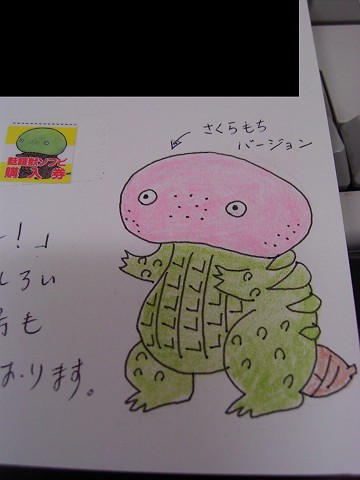 さくらもち
バージョン
獣ソフビ
購入券
ー！」
しろい
号も
おります。